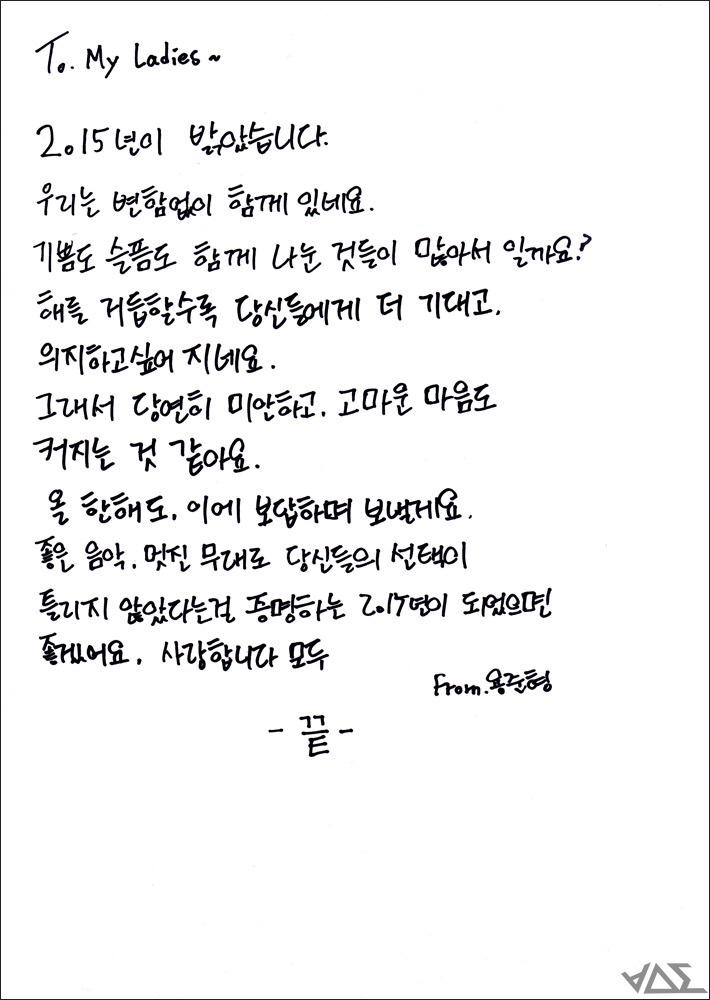 To. My Ladies~
2015년이 밝았습니다.
우리는 변함없이 함께 있네요.
기쁨도 슬픔도 함께 나눈 것들이 많아서 일까요?
해를 거듭할수록 당신들에게 더 기대고,
의지하고싶어 지네요.
그래서 당연히 미안하고, 고마운 마음도
커지는 것 같아요.
올 한해도, 이에 보답하며 보낼게요.
좋은 음악, 멋진 무대로 당신들의 선택이
틀리지 않았다는걸 증명하는 2015년이 되었으면
좋겠어요. 사랑합니다 모두
From.용준형
- 끝 -